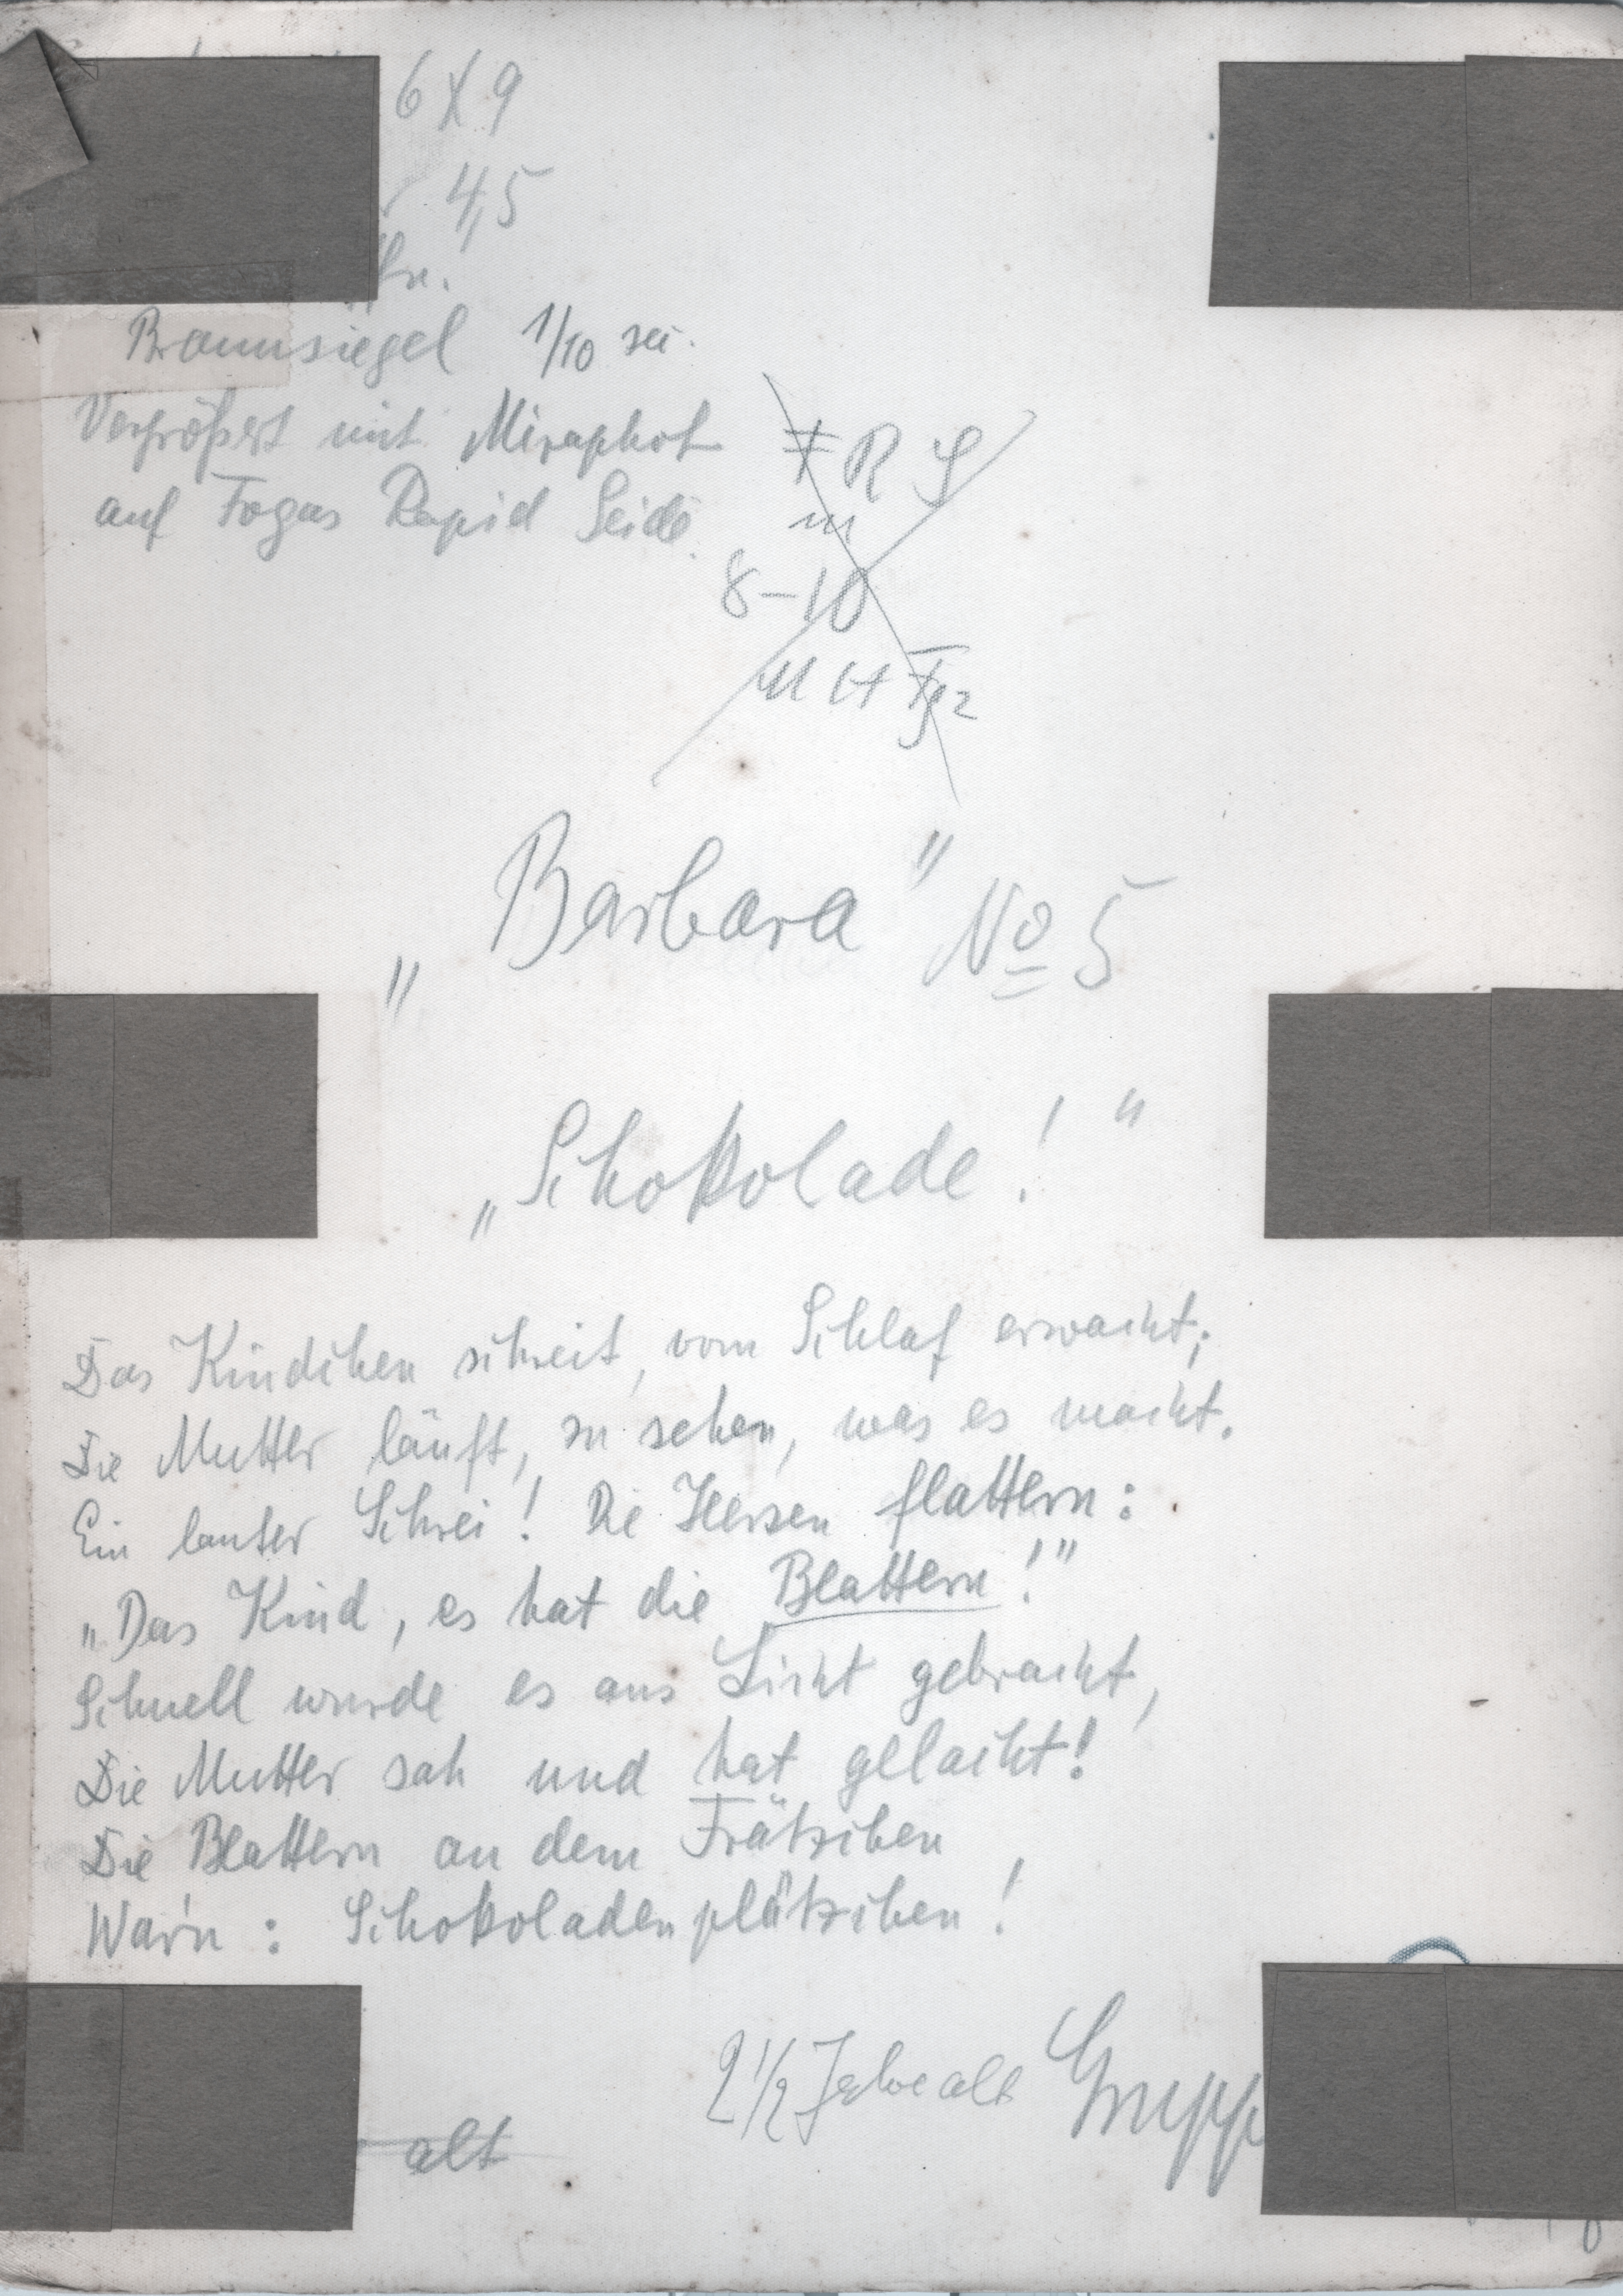 6X9
4,5
Braunsiegel 1/10 sec.
Vergrößert mit Miraphot
auf Fogas Rapid Seide.
R S
m
8-10
„Barbara" No 5
„Schokolade!"
Das Kindchen schreit, vom Schlaf erwacht;
Die Mutter läuft, zu sehen, was es macht.
Ein lauter Schrei! Die Herzen flattern:
„Das Kind, es hat die Blattern!"
Schnell wurde es ans Licht gebracht,
Die Mutter sah und hat gelacht!
Die Blattern an dem Frätzchen
War'n: Schokoladenplätzchen!
2 1/2 Jahre alt
alt